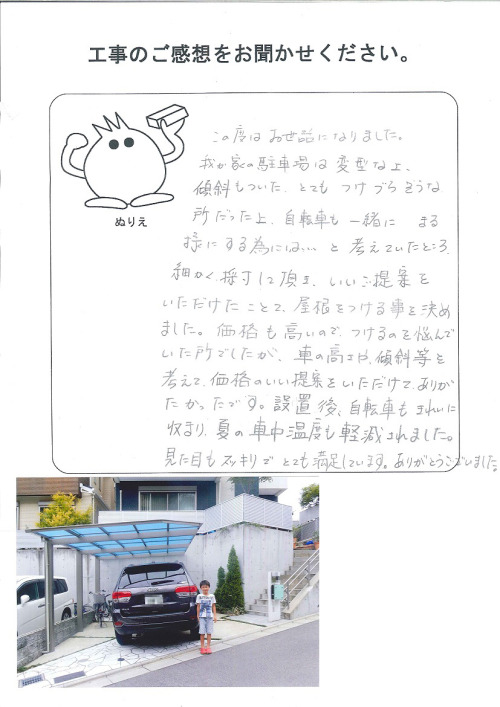 工事のご感想をお聞かせください。
ぬりえ
この度はお世話になりました。
我が家の駐車場は変型な上、
傾斜もついた、とても つけづらそうな
所だった上、自転車も 一緒に
様にする為には… と 考えていたところ、
細かく採寸して頂き、いいご提案を
いただけたことで、屋根をつける事を決め
ました。価格も高いので、つけるのを悩んで
いた所でしたが、車の高さや、傾斜等を
考えて、価格のいい提案をいただけて、ありが
たかったです。設置後、自転車もきれいに
収まり、夏の車中温度も軽減されました。
見た目もスッキリでとても満足しています。ありがとうございました。